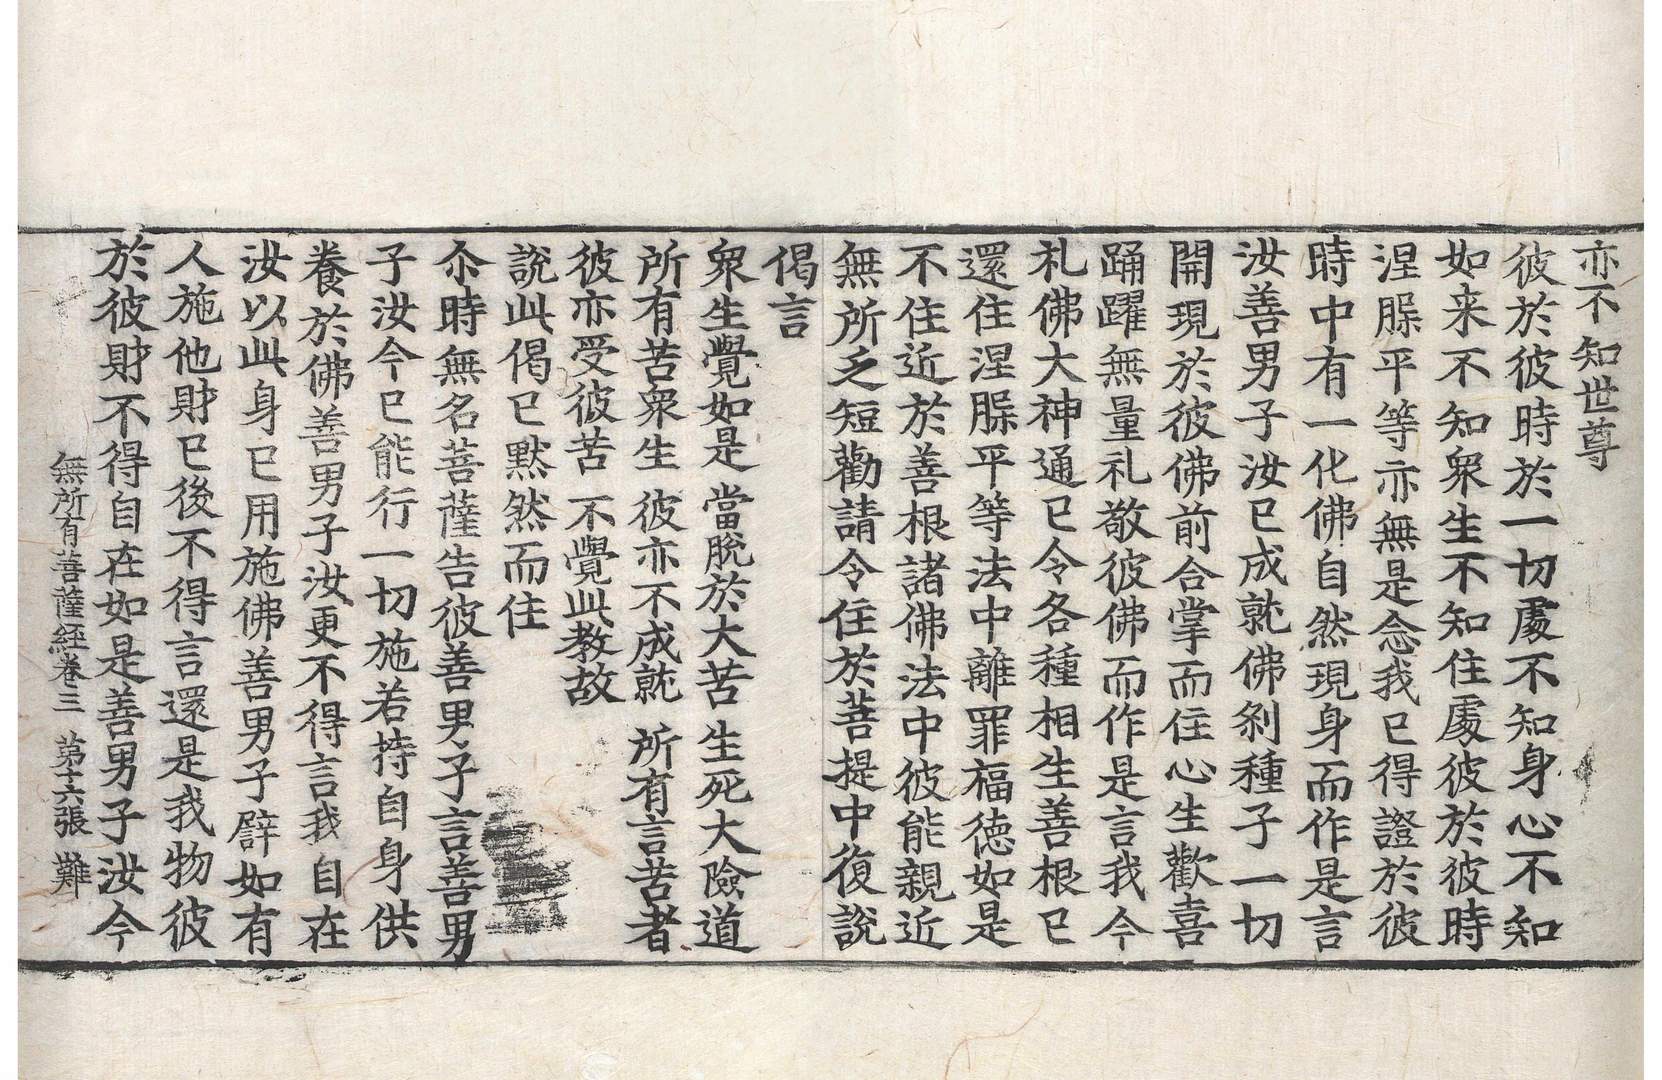 亦不知世尊
彼於彼時於一切處不知身心不知
如来不知衆生不知住處彼於彼時
涅槃平等亦無是念我已得證於彼
時中有一化佛自然現身而作是言
汝善男子汝已成就佛刹種子一切
開現於彼佛前合掌而住心生歡喜
踊躍無量礼敬彼佛而作是言我今
礼佛大神通已令各種相生善根已
還住涅槃平等法中離罪福德如是
不住近於善根諸佛法中彼能親近
無所乏短勸請令住於菩提中復說
偈言
衆生覺如是 當脫於大苦 生死大險道
所有苦衆生 彼亦不成就 所有言苦者
彼亦受彼苦 不覺此教故
說此偈已默然而住
尒時無名菩薩告彼善男子言善男
子汝今已能行一切施若持自身供
養於佛善男子汝更不得言我自在
汝以此身已用施佛善男子譬如有
人施他財已後不得言還是我物彼
於彼財不得自在如是善男子汝今
無所有菩薩經卷三 第十六張 難